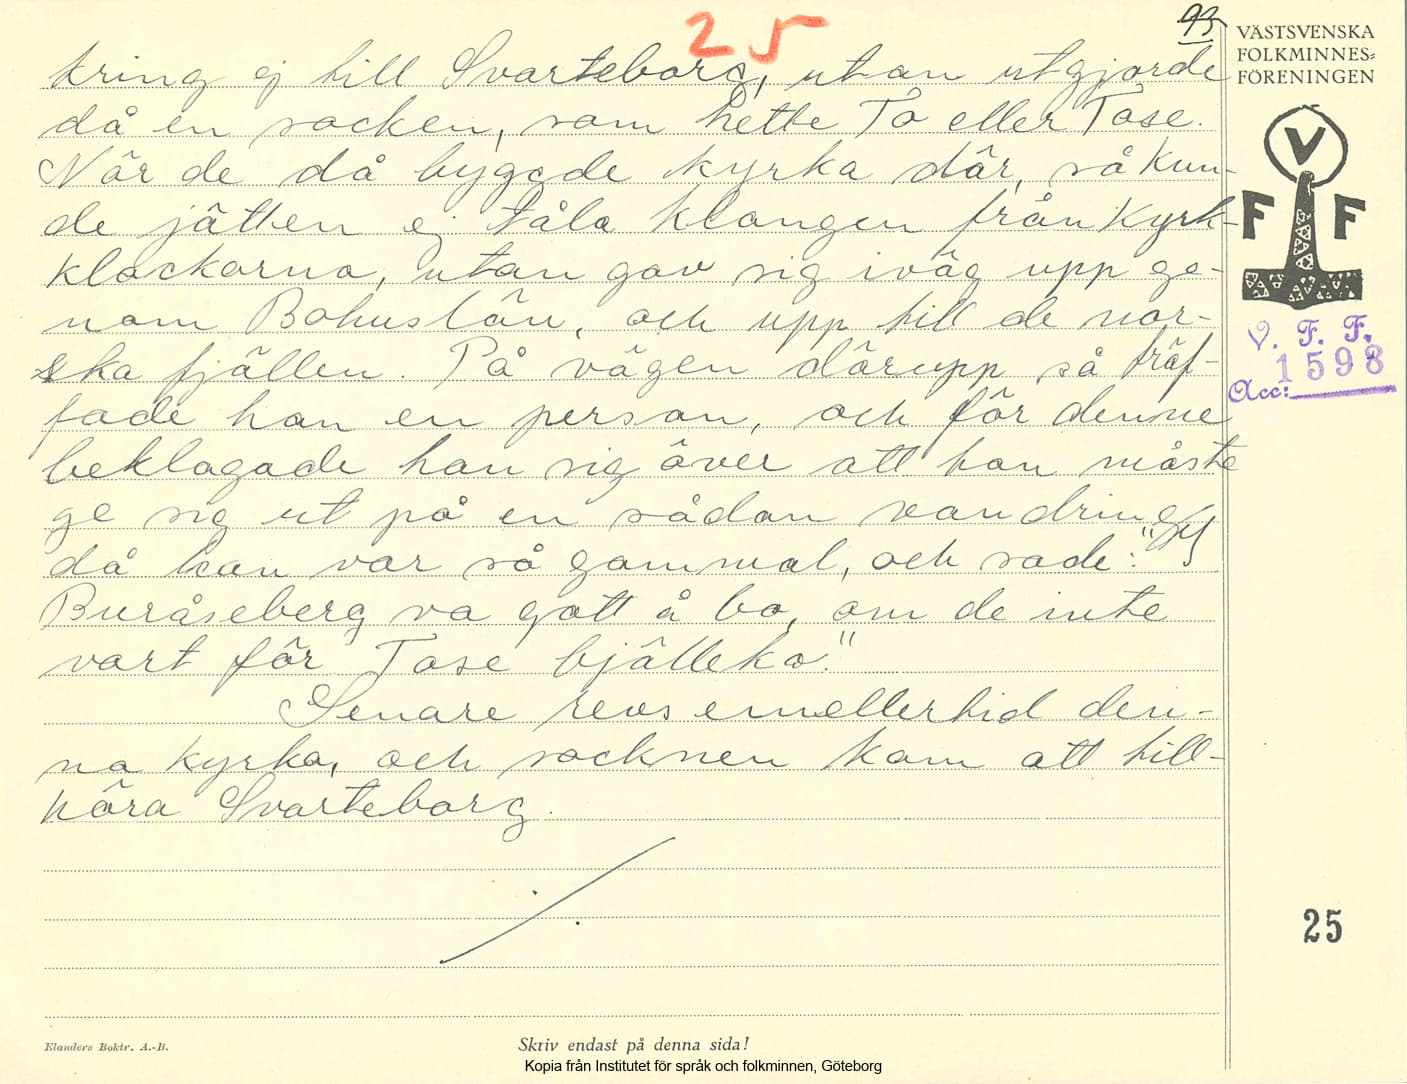 25
93
VÄSTSVENSKA
FOLKMINNES=
FÖRENINGEN
V
F F
V. F. F.
1593
Acc:
kring ej till Svarteborg, utan utgjorde
då en socken, som hette To eller Tose.
När de då byggde kyrka där, så kun-
de jätten ej tåla klangen från kyrk-
klockorna, utan gav sig iväg upp ge-
nom Bohuslän, och upp till de nor-
ska fjällen På vägen därupp så träf-
fade han en person, och för denne
beklagade han sig över att han måste
ge sig ut på en sådan vandring
då han var så gammal, och sade: "I
Buråseberg va gott å bo, om de inte
vart för Tose bjälleko."
Senare revs emellertid den-
na kyrka, och socknen kom att till-
höra Svarteborg.
25
Elanders Boktr. A.-B.
Skriv endast på denna sida!
Kopia från Institutet för språk och folkminnen, Göteborg